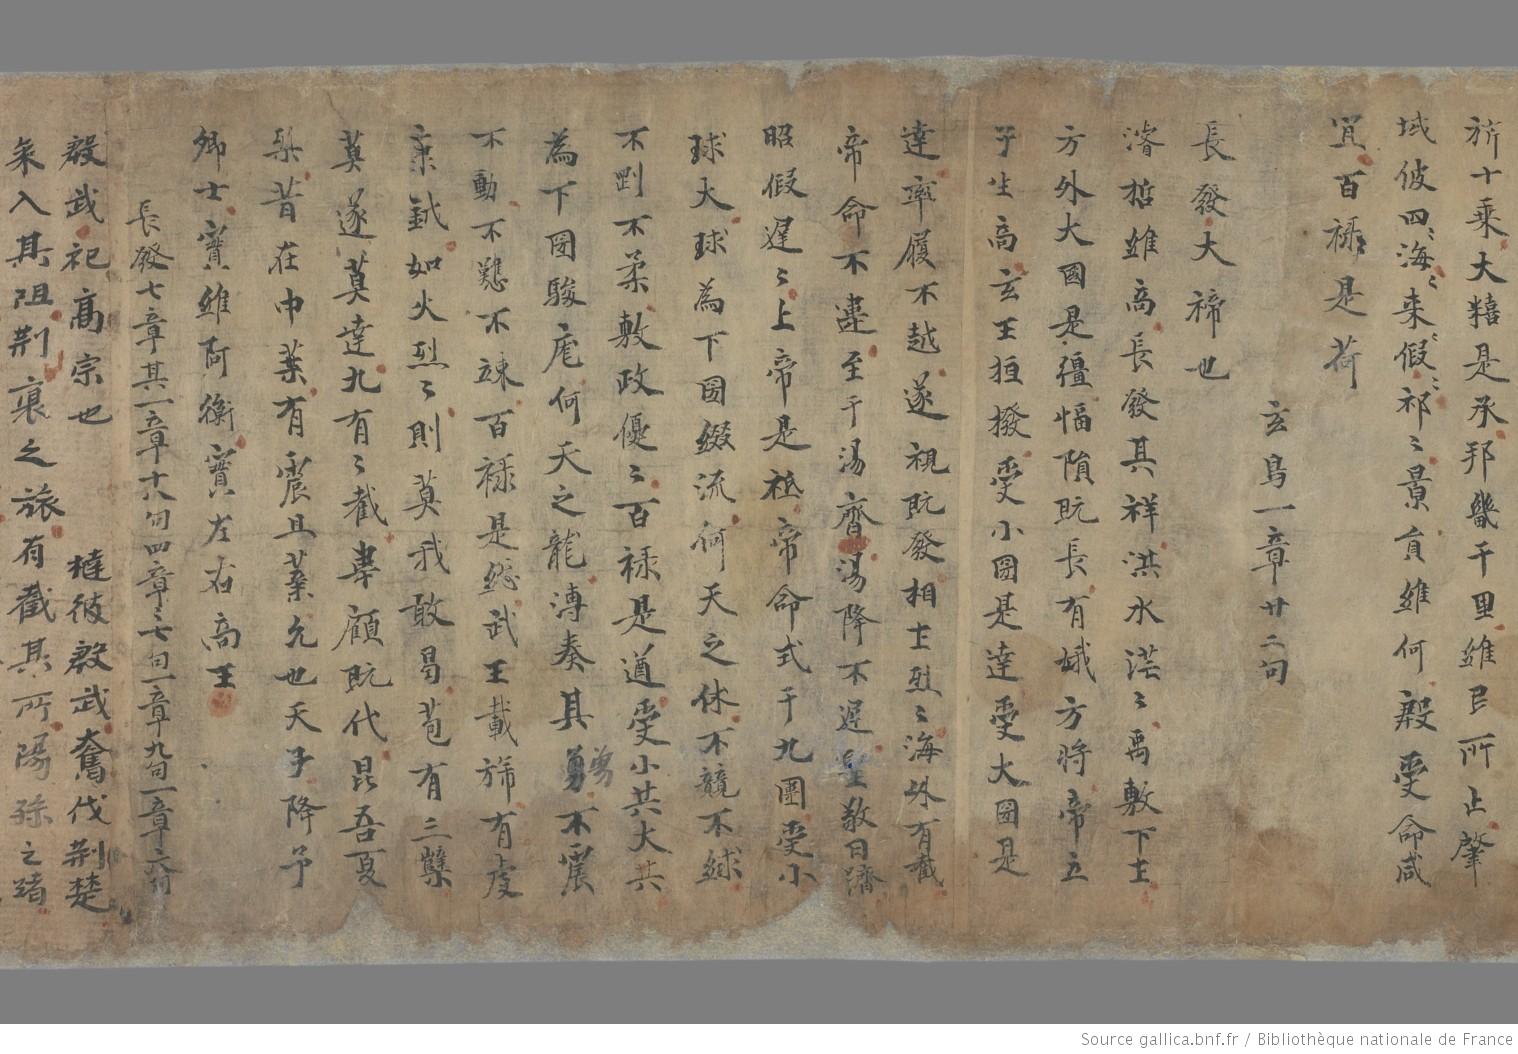 旂十乘大糦是承邦畿千里維民所止肇
域彼四〻海〻来〻假〻祁〻景員維何殷受命咸
宜百祿是荷
玄鳥一章廿二句
長發大禘也
濬哲維啇長發其祥洪水茫〻禹敷下土
方外大國是疆幅隕既長有娀方將帝立
子生啇玄王桓撥受小國是達受大國是
達率履不越遂視既發相土烈〻海外有截
帝命不違至于湯齊湯降不遲聖敬日躋
昭假遲〻上帝是祗帝命式于九圍受小
球大球為下國綴流何天之休不競不絿
不剛不柔敷政優〻百祿是遒受小共大共
為下國駿厖何天之龍漙奏其勇不震
不動不戁不竦百祿是総武王載斾有虔
秉鉞如火烈〻則莫我敢曷苞有三櫱
莫遂莫達九有〻截韋顧既代昆吾夏
桀昔在中葉有震且業允也天子降予
卿士寶維阿衡寶左右啇王
長發七章其一章十八句四章〻七句一章九句一章六句
殷武祀髙宗也 撻彼殷武奮伐荆楚
冞入其阻荆裒之旅有截其所陽孫之緒
Source gallica.bnf.fr / Bibliothèque nationale de France